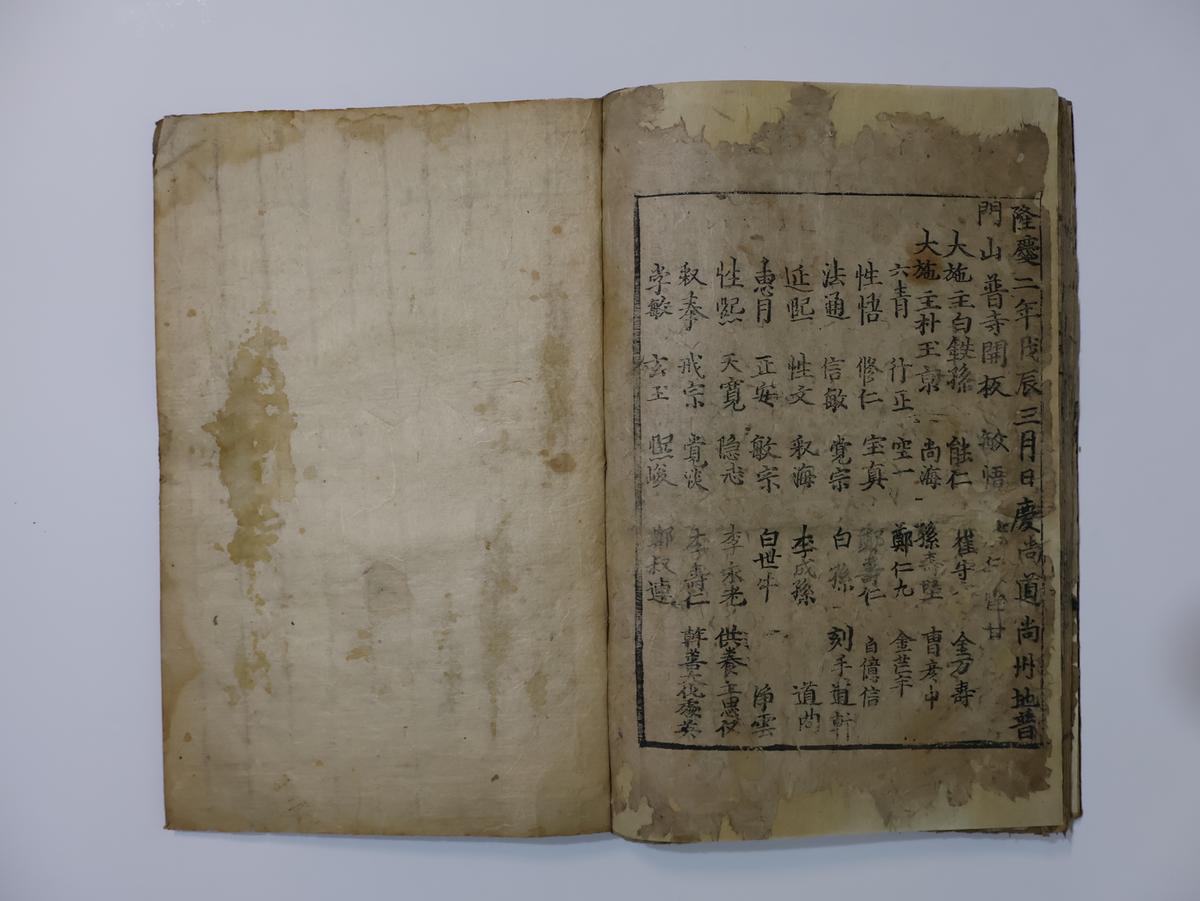 隆慶二年戊辰三月日慶尚道尚州地普
門山普寺開板 敏悟 仁
大施主白鉄孫 能仁 崔牛 金万壽
大施主朴玉京 尚海 孫 曺彦山
六青月 行正 空一 鄭仁九 金
性悟 修仁 宝真 鄭壽仁 白億信
法通 信敏 覚宗 白孫 刻手道軒
延熙 性文 釈海 李成孫 道
惠月 正安 敏宗 白世牛 浄雲
性熙 天寛 隐志 李永老 供養主思
釈奉 戒宗 覚 李壽仁 幹善 化處英
学敏 玄玉 熙峻 鄭叔